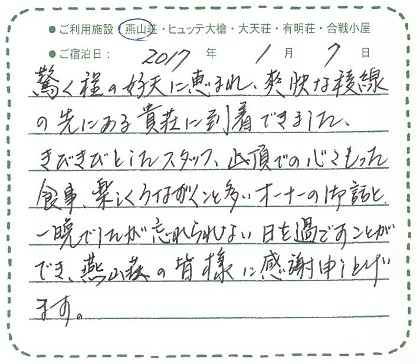 ●ご利用施設・燕山荘・ヒュッテ大槍・大天荘・有明荘・合戦小屋
●ご宿泊日： 2017 年 1 月 7 日
驚く程の好天に恵まれ、爽快な稜線
の先にある貴荘に到着できました、
きびきびとしたスタッフ、山頂での心こもった
食事、楽しくうなずくこと多いオーナーのお話と、
一晩でしたが忘れられない日を過ごすことが
でき、燕山荘の皆様に感謝申し上げ
ます。